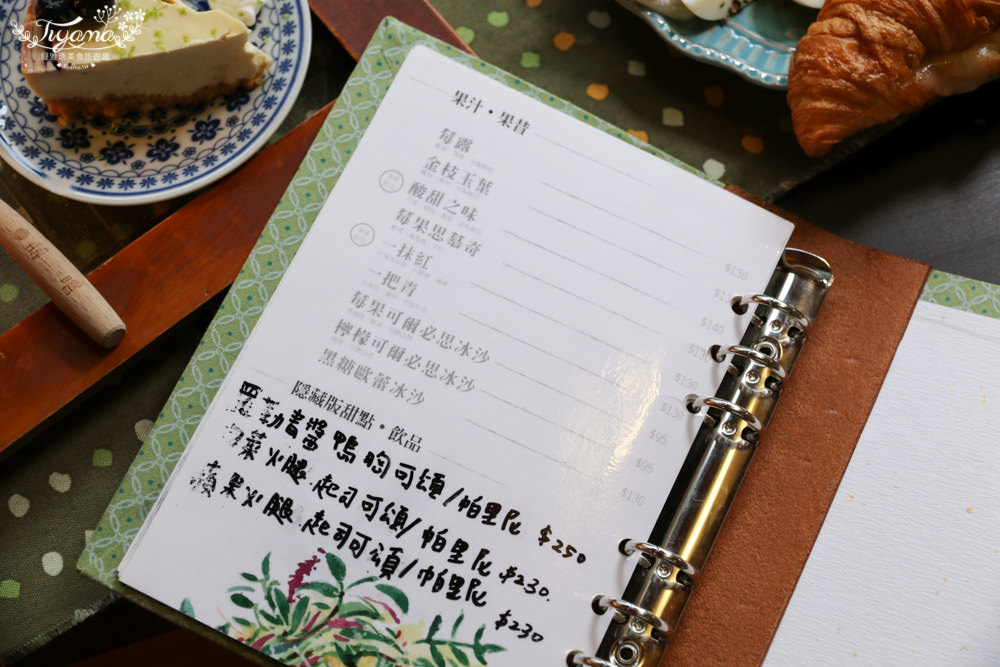 Tiyama
緹雅瑪美食旅遊趣
tiyama.tw
果汁・果昔
莓露
$130
金枝玉葉
酸甜之味
$140
莓果思慕奇
一抹紅
$130
一把青
$130
莓果可爾必思冰沙
$95
檸檬可爾必思冰沙
$95
黑糖歐蕾冰沙
$130
隱藏版甜點・飲品
羅勒青醬鴨胸可頌/帕里尼 $250
菜火腿起司可頌/帕里尼 $230.
蘋果火腿起司可頌/帕里尼 $230